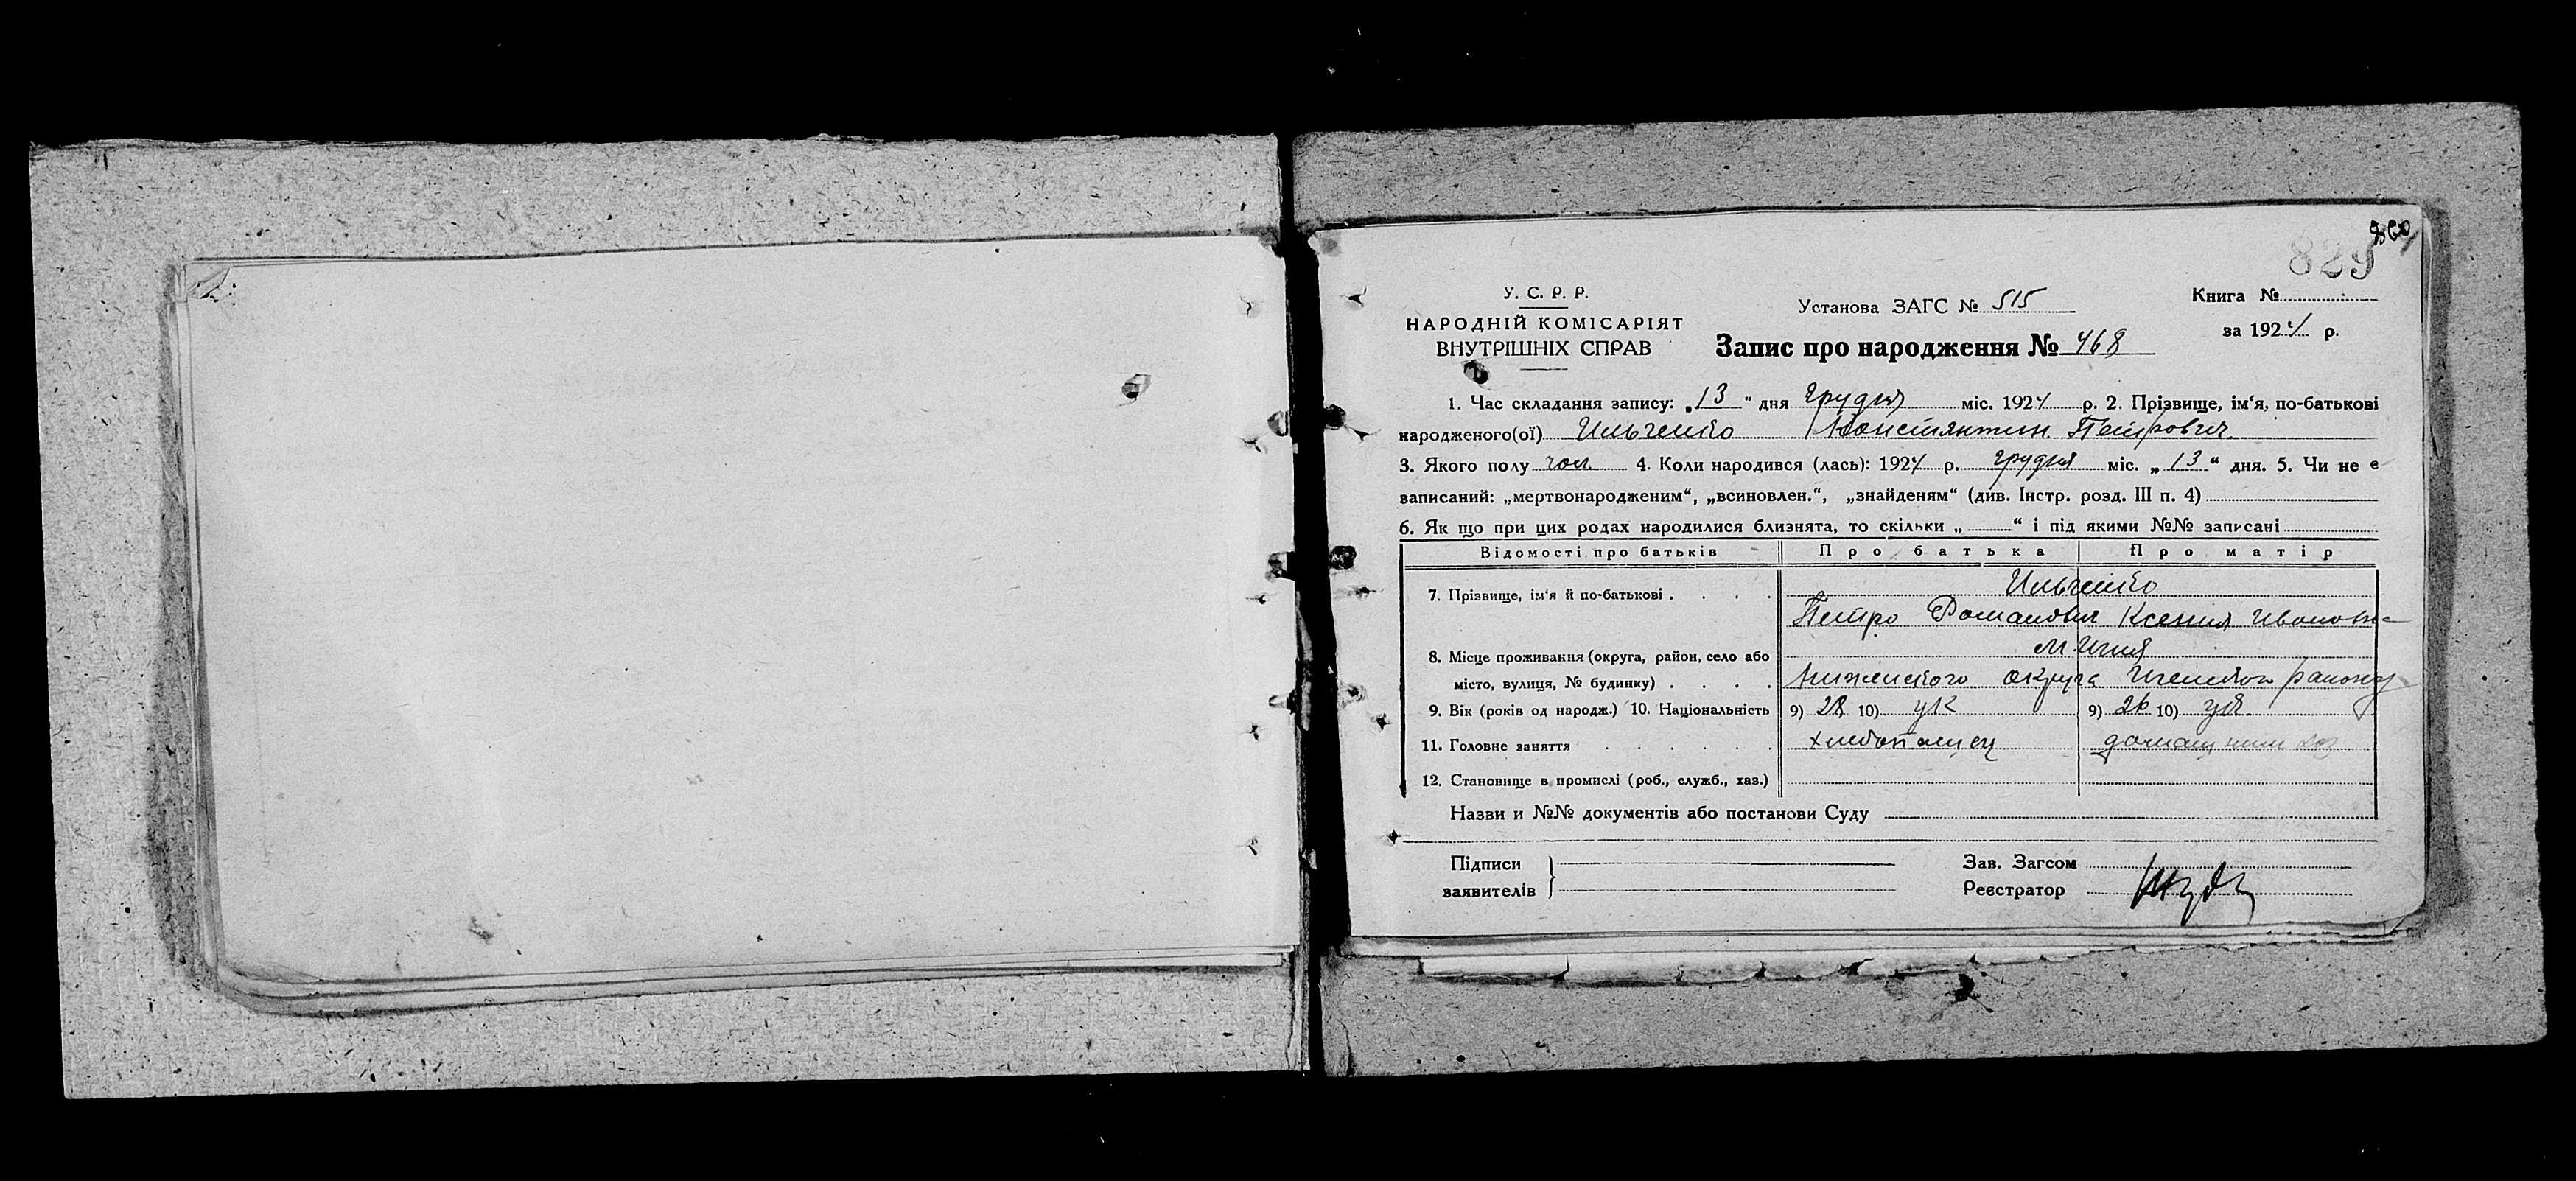 829
У. С. Р. Р.
НАРОДНІЙ КОМІСАРІЯТ
ВНУТРІШНІХ СПРАВ
Установа ЗАГС № 515
Книга №
за 1924 р.
Запис про народження № 468
1. Час складання запису: „13“ дня грудня міс. 1924 р. 2. Прізвище, ім‘я, по-батькові
народженого(ої) Ильченко Констянтин Петрович
3. Якого полу чол. 4. Коли народився (лась): 1924 р. грудня міс. „13“ дня. 5. Чи не е
записаний: „мертвонародженим“, „всиновлен.“, „знайденям“ (див. Інстр. розд. III п. 4)
6. Як що при цих родах народилися близнята, то скільки „ “ і під якими №№ записані
Відомості про батьків Про батька Про матір
7. Прізвище, ім‘я й по-батькові Ильченко
Петро Романович Ксения Ивановна
8. Місце проживання (округа, район, село або м. Ичня
місто, вулиця, № будинку) Ниженского округа Иченског району
9. Вік (років од народж.) 10. Національність 9) 28 10) ук 9) 26 10) ук.
11. Головне заняття хлебопашец
12. Становище в промислі (роб., служб., хаз.)
Назви и №№ документів або постанови Суду
Підписи
заявителів
Зав. Загсом
Реєстратор